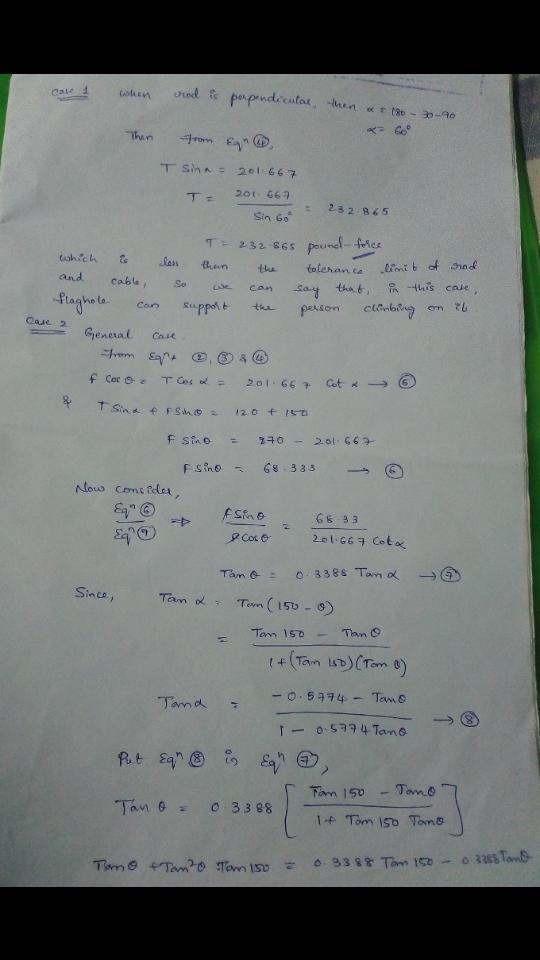 Case 1 When rod is perpendicular, then α = 180 - 30 - 90
α = 60°
Then From Eqⁿ ④,
T Sinα = 201.667
T = 201.667 / Sin 60° = 232.865
T = 232.865 pound-force
which is less than the tolerance limit of rod
and cable, so we can say that, in this case,
flaghole can support the person climbing on it
Case 2 General case.
From Eqⁿs ②, ③ & ④
f Cos θ = T Cos α = 201.667 Cot α → ⑤
& T Sinα + F Sinθ = 120 + 150
F Sinθ = 270 - 201.667
F Sinθ = 68.333 → ⑥
Now consider,
Eqⁿ ⑥ / Eqⁿ ⑨ ⇒ F Sinθ / F Cosθ = 68.33 / 201.667 Cotα
Tan θ = 0.3388 Tan α → ⑦
Since, Tan α = Tan (150 - θ)
= Tan 150 - Tan θ / 1 + (Tan 150) (Tan θ)
Tanα = -0.5774 - Tanθ / 1 - 0.5774 Tanθ → ⑧
Put Eqⁿ ⑧ in Eqⁿ ⑦,
Tan θ = 0.3388 [ Tan 150 - Tan θ / 1 + Tan 150 Tanθ ]
Tanθ + Tan²θ Tan 150 = 0.3388 Tan 150 - 0.3388 Tanθ